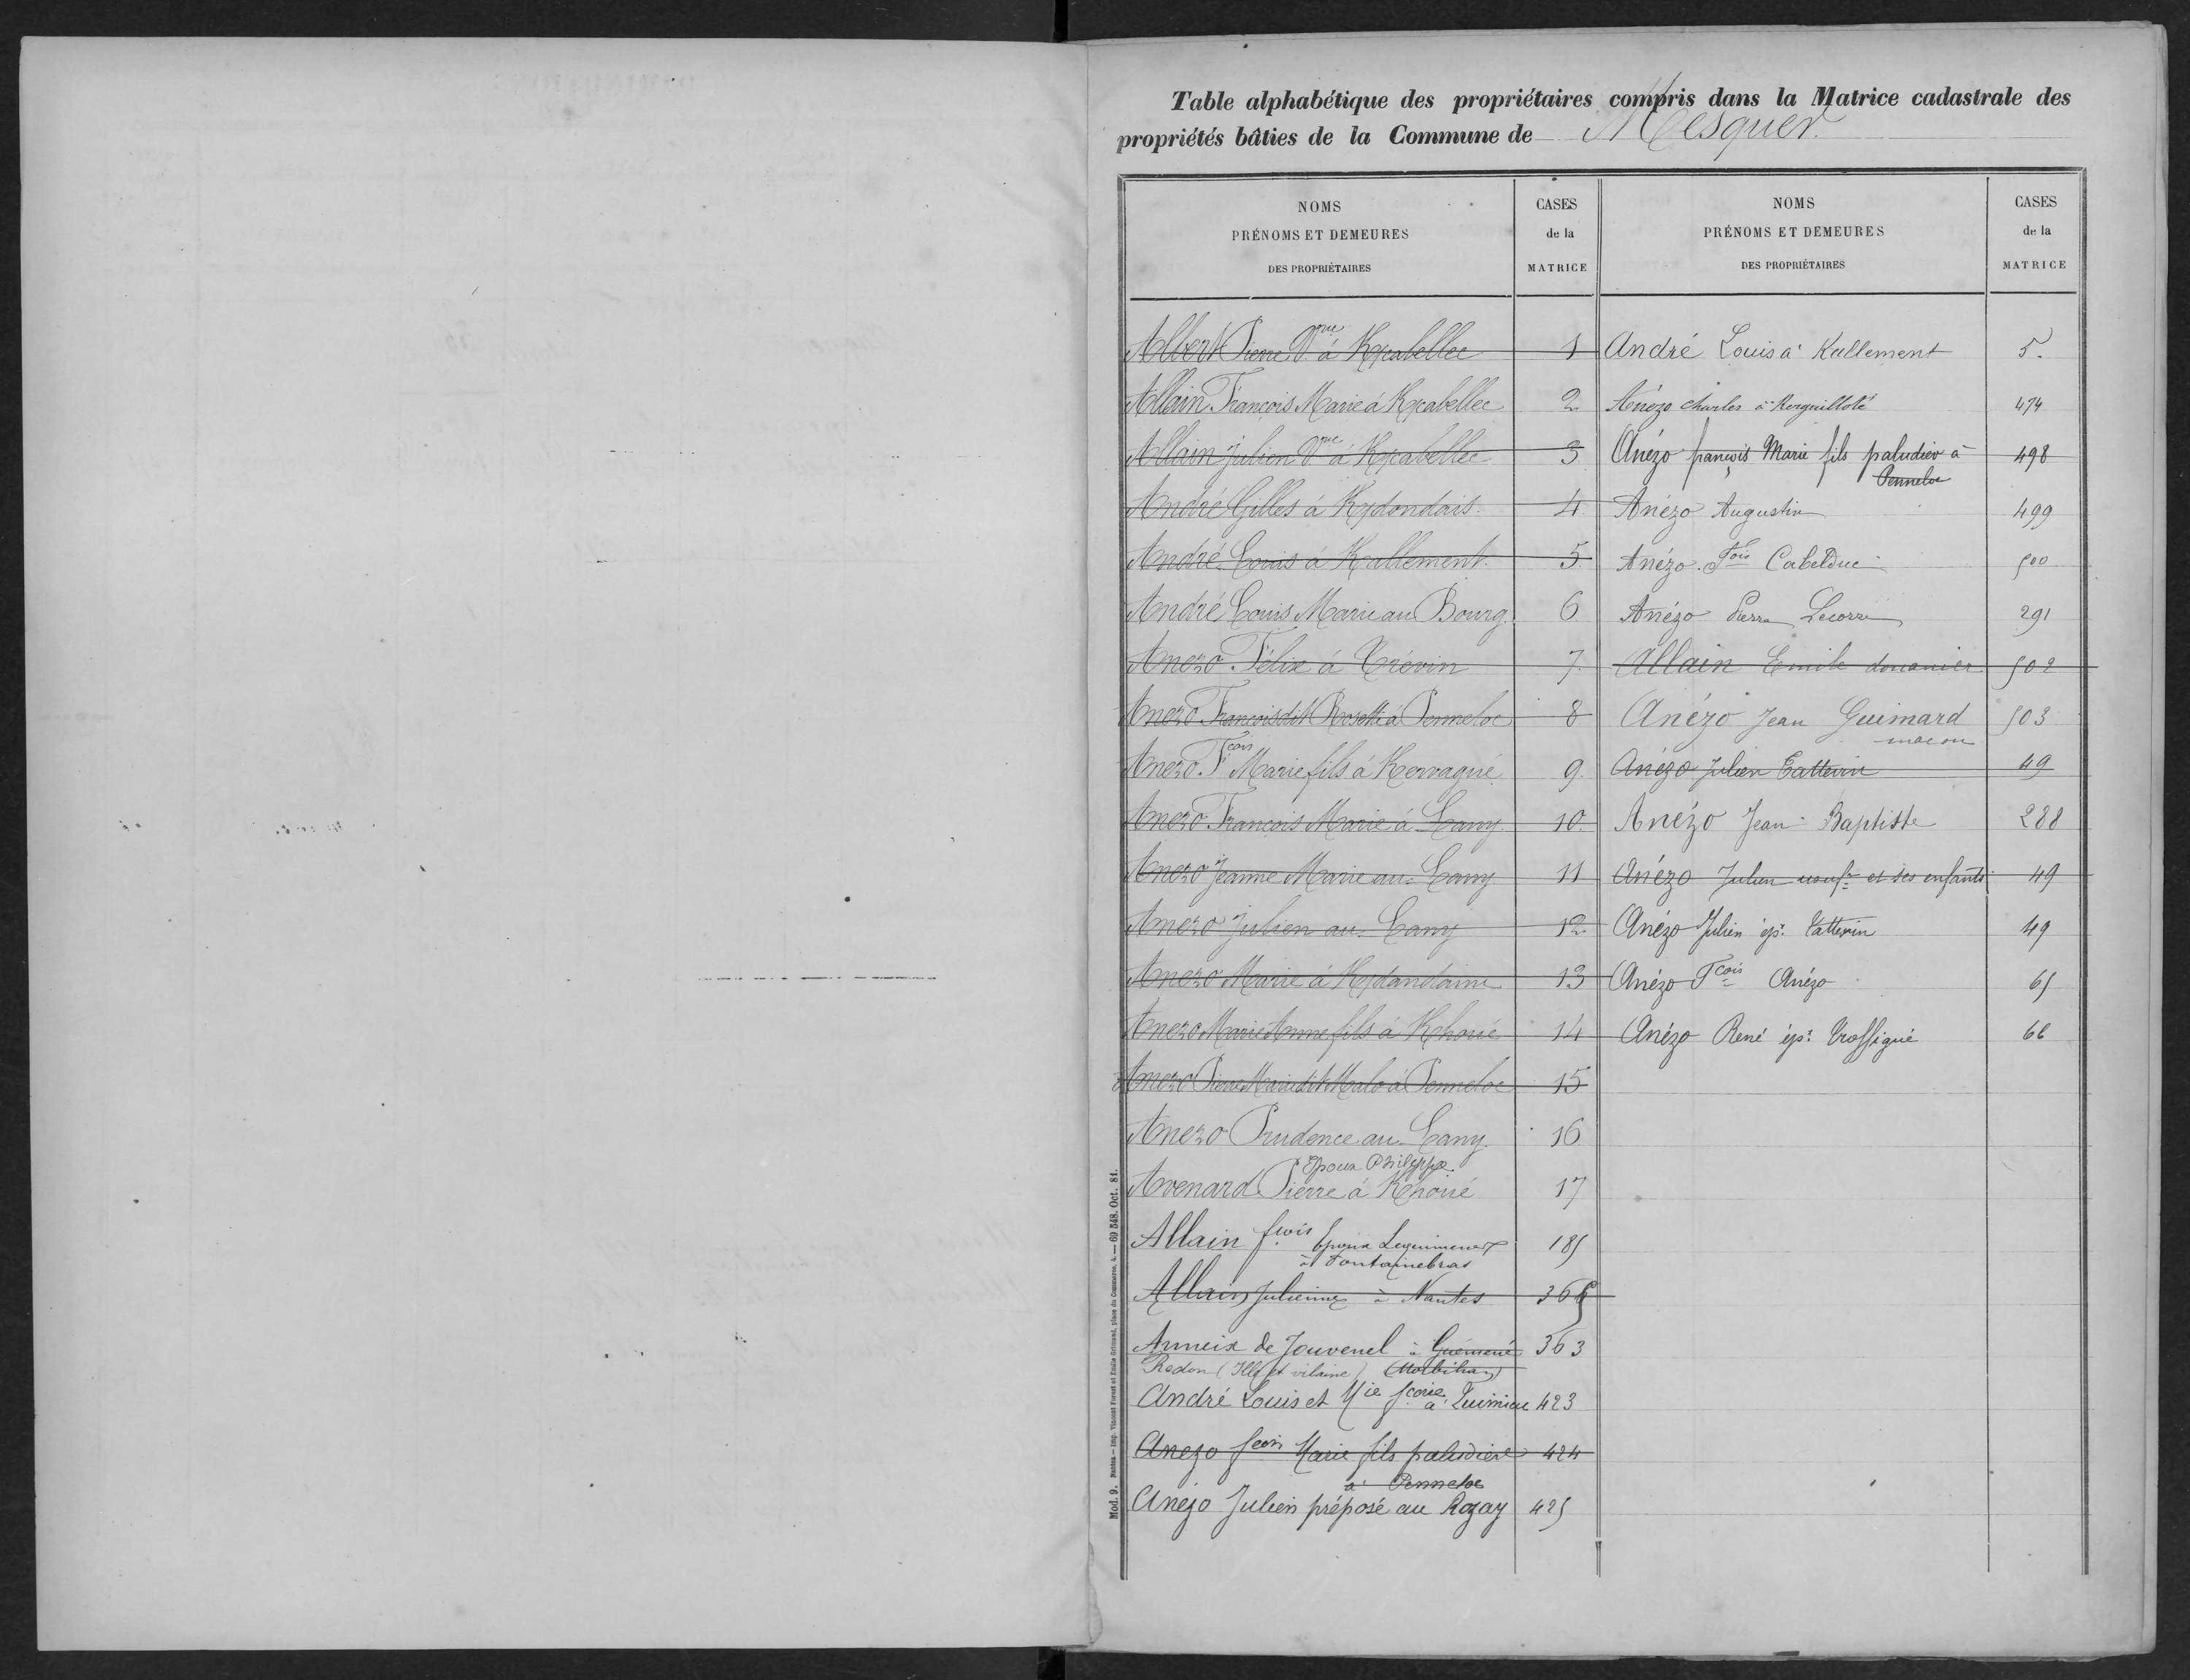 Table alphabétique des propriétaires compris dans la Matrice cadastrale des
propriétés bâties de la Commune de Mesquer
NOMS
PRÉNOMS ET DEMEURES
DES PROPRIÉTAIRES
CASES
de la
MATRICE
Albert Pierre Vve à Kercabellec 1
Allain François Marie à Kercabellec 2
Allain Julien Vve à Kercabellec 3
André Gilles à 4
André Louis à Kallement 5
André Louis Marie au Bourg 6
Anezo Félix à Trévin 7
Anezo François dit Rosette à Penneloc 8
Anezo Fcois Marie fils à Kervagué 9
Anezo François Marie à Lany 10
Anezo Jeanne Marie au Lany 11
Anezo Julien au Lany 12
Anezo Marie à 13
Anezo Marie Anne fils à Khoué 14
Anezo Pierre Marie dit Malo à Penneloc 15
Anezo Prudence au Lany 16
Epoux Philippe
Avenard Pierre à Khoué 17
Allain fcois époux 185
à Fontainebras
Allain Julienne à Nantes 366
Anneix de Jouvenel à Guémené 363
Redon (Ille et vilaine) (Morbihan)
André Louis et Mie à Quimiac 423
Anezo fcois Marie fils paludier 424
à Penneloc
Anezo Julien préposé au Rozay 425
NOMS
PRÉNOMS ET DEMEURES
DES PROPRIÉTAIRES
CASES
de la
MATRICE
André Louis à Kallement 5.
Anézo charles à Kerguilloté 474
Anézo françois Marie fils paludier à 498
Penneloc
Anézo Augustin 499
Anézo Fois Cabelduc 500
Anézo Pierre Lecorre 291
Allain Emile douanier 502
Anézo Jean Guimard 503
macon
Anézo Julien Tattevin 49
Anézo Jean-Baptiste 288
Anézo Julien usufr et ses enfants 49
Anézo Julien ép. Tattevin 49
Anézo Fcois Anézo 65
Anézo René ép. Trossigué 66
Mod. 9. Nantes — Imp. Vincent Forest et Émile Grimaud, place du Commerce, 4. — 69 548. Oct. 81.